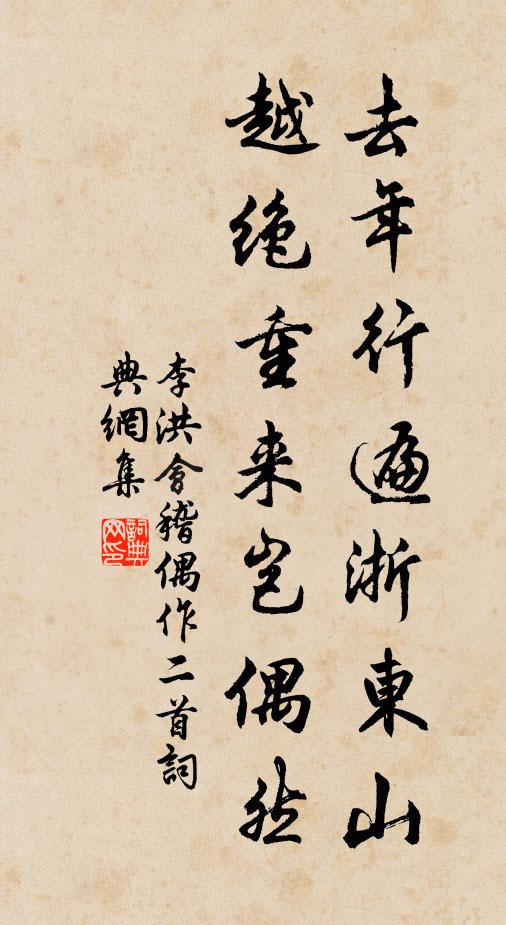 去年行遍浙東山
越絶重来豈偶然
李洪會稽偶作二首詞
典網集
詞典网印